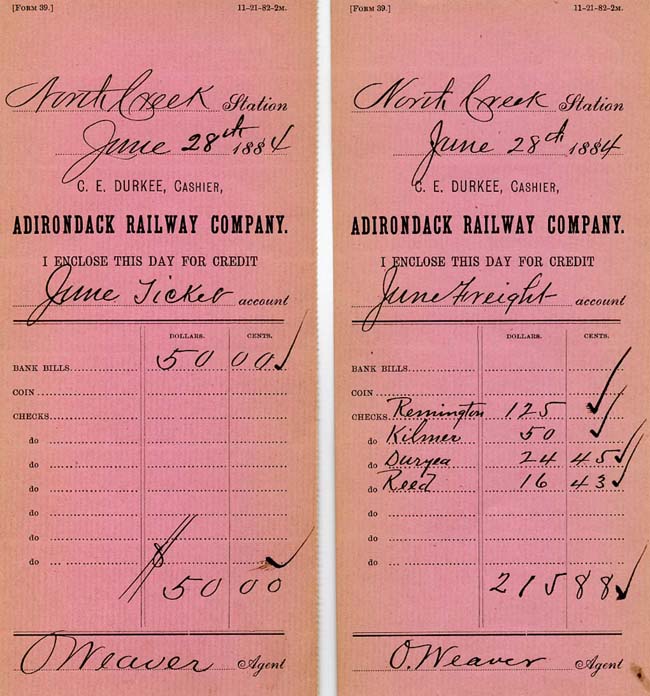 [FORM 39.] 11-21-82-2M.
North Creek Station
June 28th 1884
C. E. DURKEE, CASHIER,
ADIRONDACK RAILWAY COMPANY.
I ENCLOSE THIS DAY FOR CREDIT
June Ticket account
DOLLARS. CENTS.
BANK BILLS 50 00 ✓
COIN
CHECKS
do
do
do
do
do
do ✓
50 00
O Weaver Agent
[FORM 39.] 11-21-82-2M.
North Creek Station
June 28th 1884
C. E. DURKEE, CASHIER,
ADIRONDACK RAILWAY COMPANY.
I ENCLOSE THIS DAY FOR CREDIT
June Freight account
DOLLARS. CENTS.
BANK BILLS
COIN
CHECKS Remington 125 ✓
do Kilmer 50 ✓
do Duryea 24 45 ✓
do Reed 16 43 ✓
do
do
do
215 88 ✓
O. Weaver Agent